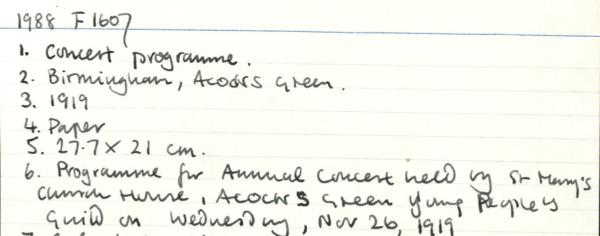 1988 F1607
1. Concert programme.
2. Birmingham, Acocks Green.
3. 1919
4. Paper
5. 27.7 x 21 cm.
6. Programme for Annual Concert held by St Mary's
Church House, Acocks Green Young People's
Guild on Wednesday, Nov 26, 1919